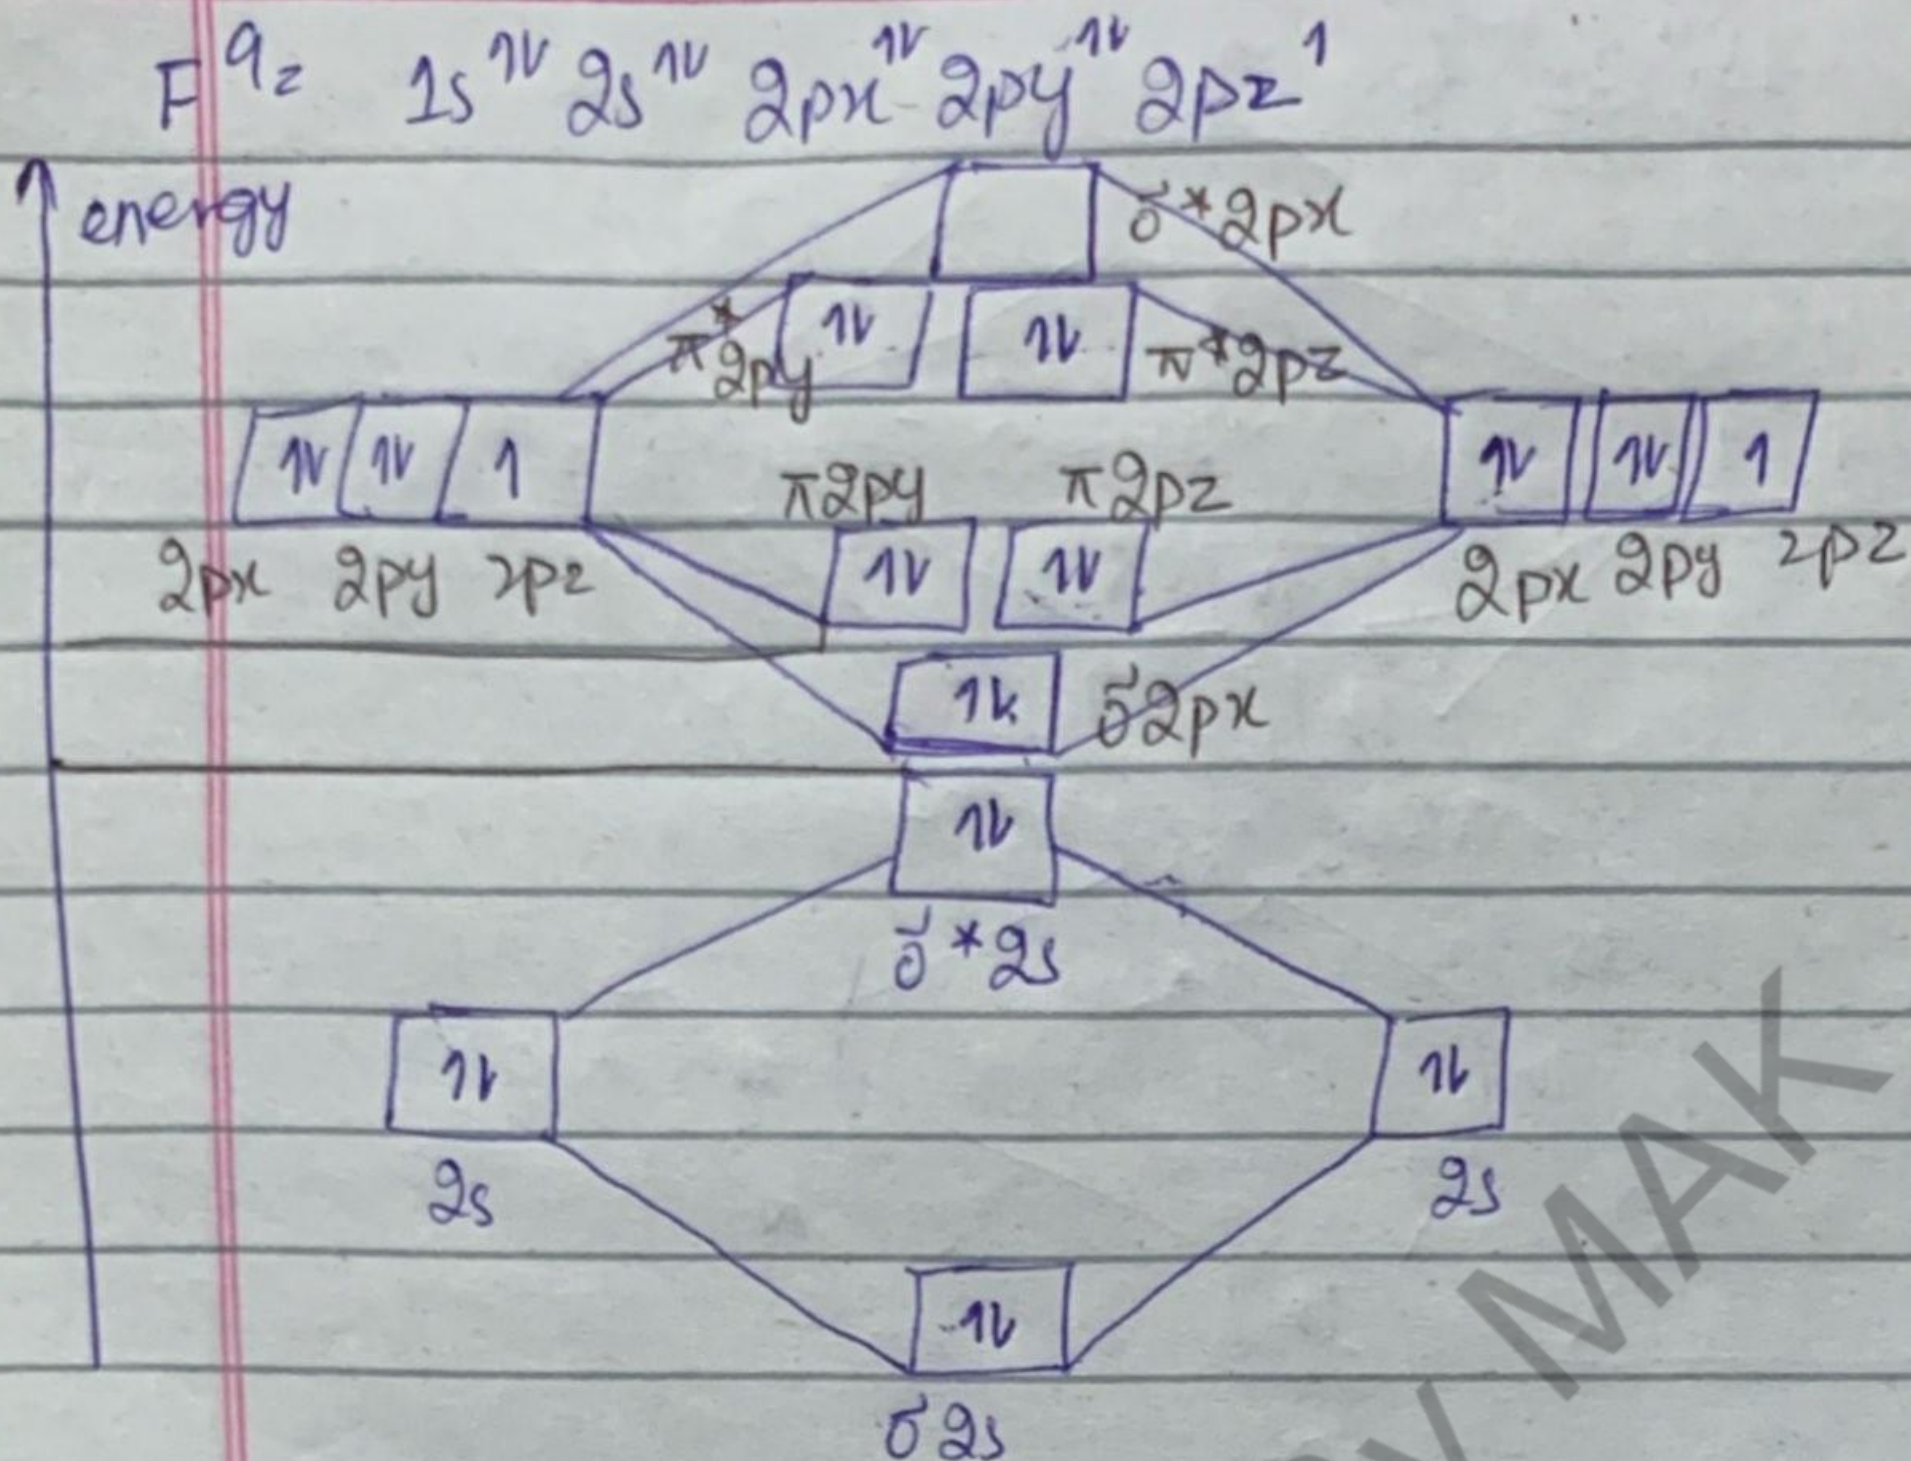 F⁹= 1s¹⇂ 2s¹⇂ 2px¹⇂ 2py¹⇂ 2pz¹
energy
σ*2px
π*2py 1⇂ 1⇂ π*2pz
1⇂ 1⇂ 1 1⇂ 1⇂ 1
π2py π2pz
2px 2py 2pz 1⇂ 1⇂ 2px 2py 2pz
1⇂ σ2px
1⇂
σ*2s
1⇂ 1⇂
2s 2s
1⇂
σ2s
MAK